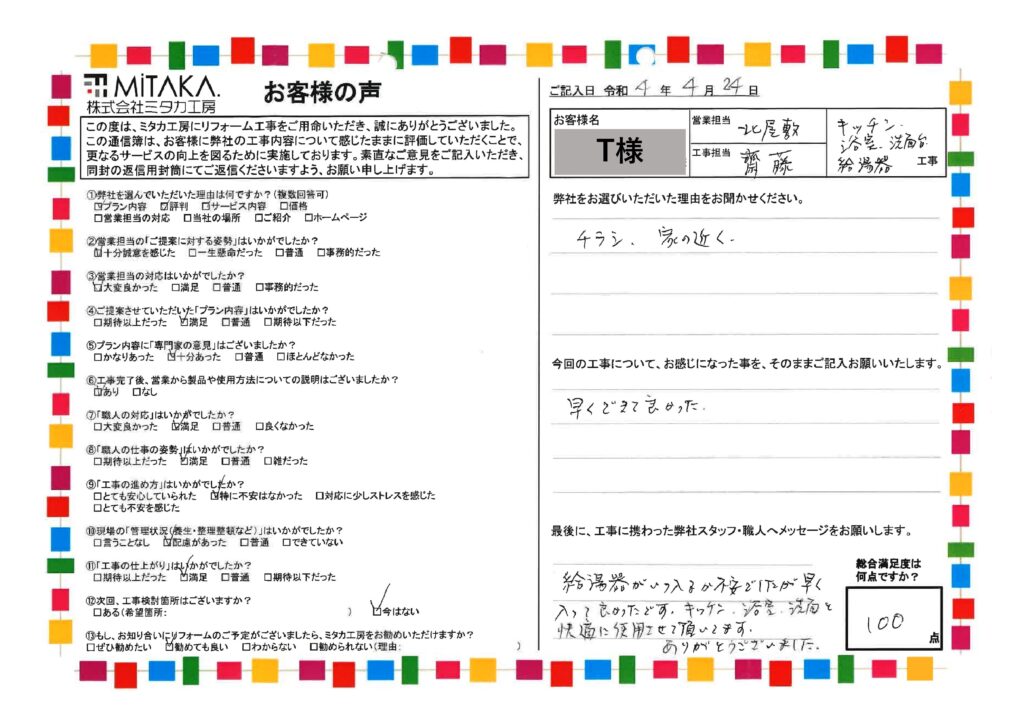 MiTAKA.
株式会社ミタカ工房
お客様の声
この度は、ミタカ工房にリフォーム工事をご用命いただき、誠にありがとうございました。
この通信簿は、お客様に弊社の工事内容について感じたままに評価していただくことで、
更なるサービスの向上を図るために実施しております。素直なご意見をご記入いただき、
同封の返信用封筒にてご返信くださいますよう、お願い申し上げます。
①弊社を選んでいただいた理由は何ですか?(複数回答可)
☑プラン内容 ☑評判 ☑サービス内容 □価格
□営業担当の対応 □当社の場所 □ご紹介 □ホームページ
②営業担当の「ご提案に対する姿勢」はいかがでしたか?
☑十分誠意を感じた □一生懸命だった □普通 □事務的だった
③営業担当の対応はいかがでしたか?
☑大変良かった □満足 □普通 □事務的だった
④ご提案させていただいた「プラン内容」はいかがでしたか?
□期待以上だった ☑満足 □普通 □期待以下だった
⑤プラン内容に「専門家の意見」はございましたか?
□かなりあった ☑十分あった □普通 □ほとんどなかった
⑥工事完了後、営業から製品や使用方法についての説明はございましたか?
☑あり □なし
⑦「職人の対応」はいかがでしたか?
□大変良かった ☑満足 □普通 □良くなかった
⑧「職人の仕事の姿勢」はいかがでしたか?
□期待以上だった ☑満足 □普通 □雑だった
⑨「工事の進め方」はいかがでしたか?
□とても安心していられた ☑特に不安はなかった □対応に少しストレスを感じた
□とても不安を感じた
⑩現場の「管理状況(養生・整理整頓など)」はいかがでしたか?
□言うことなし ☑配慮があった □普通 □できていない
⑪「工事の仕上がり」はいかがでしたか?
□期待以上だった ☑満足 □普通 □期待以下だった
⑫次回、工事検討箇所はございますか?
□ある(希望箇所: ) ☑今はない
⑬もし、お知り合いにリフォームのご予定がございましたら、ミタカ工房をお勧めいただけますか?
□ぜひ勧めたい ☑勧めても良い □わからない □勧められない(理由: )
ご記入日 令和 4 年 4 月 24 日
お客様名
T様
営業担当 北屋敷
工事担当 齋藤
キッチン.
浴室.洗面台
給湯器 工事
弊社をお選びいただいた理由をお聞かせください。
チラシ、家の近く.
今回の工事について、お感じになった事を、そのままご記入お願いいたします。
早くできて良かった.
最後に、工事に携わった弊社スタッフ・職人へメッセージをお願いします。
給湯器がいつ入るか不安でしたが早く
入って良かったです.キッチン.浴室.洗面と
快適に使用させて頂いてます.
ありがとうございました.
総合満足度は
何点ですか?
100
点